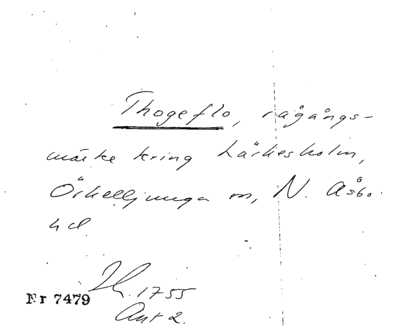 Thogeflo, rågångs-
märke kring Lärkesholm,
Örkelljunga sn, N. Åsbo
hd
1755
Nr 7479
Akt 2.